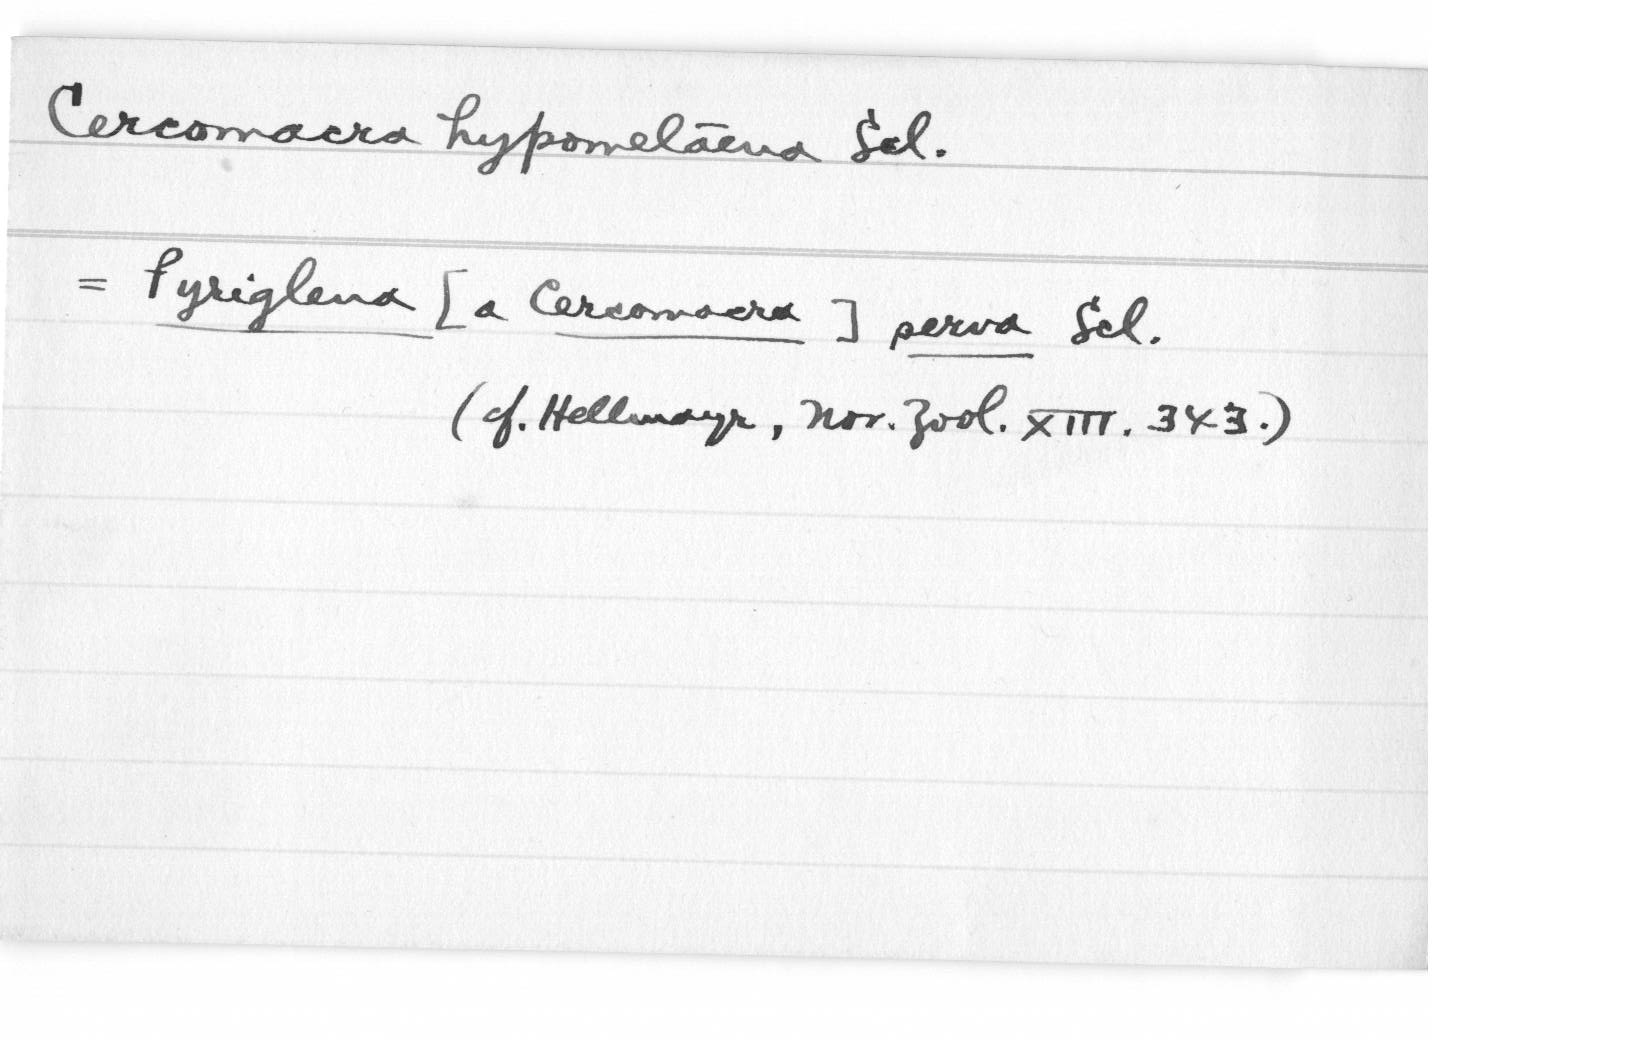 Cercomacra hypomelāena Scl.
= Pyriglena [a Cercomacra] serva Scl.
(cf. Hellmayr, Nov. Zool. XIII. 343.)